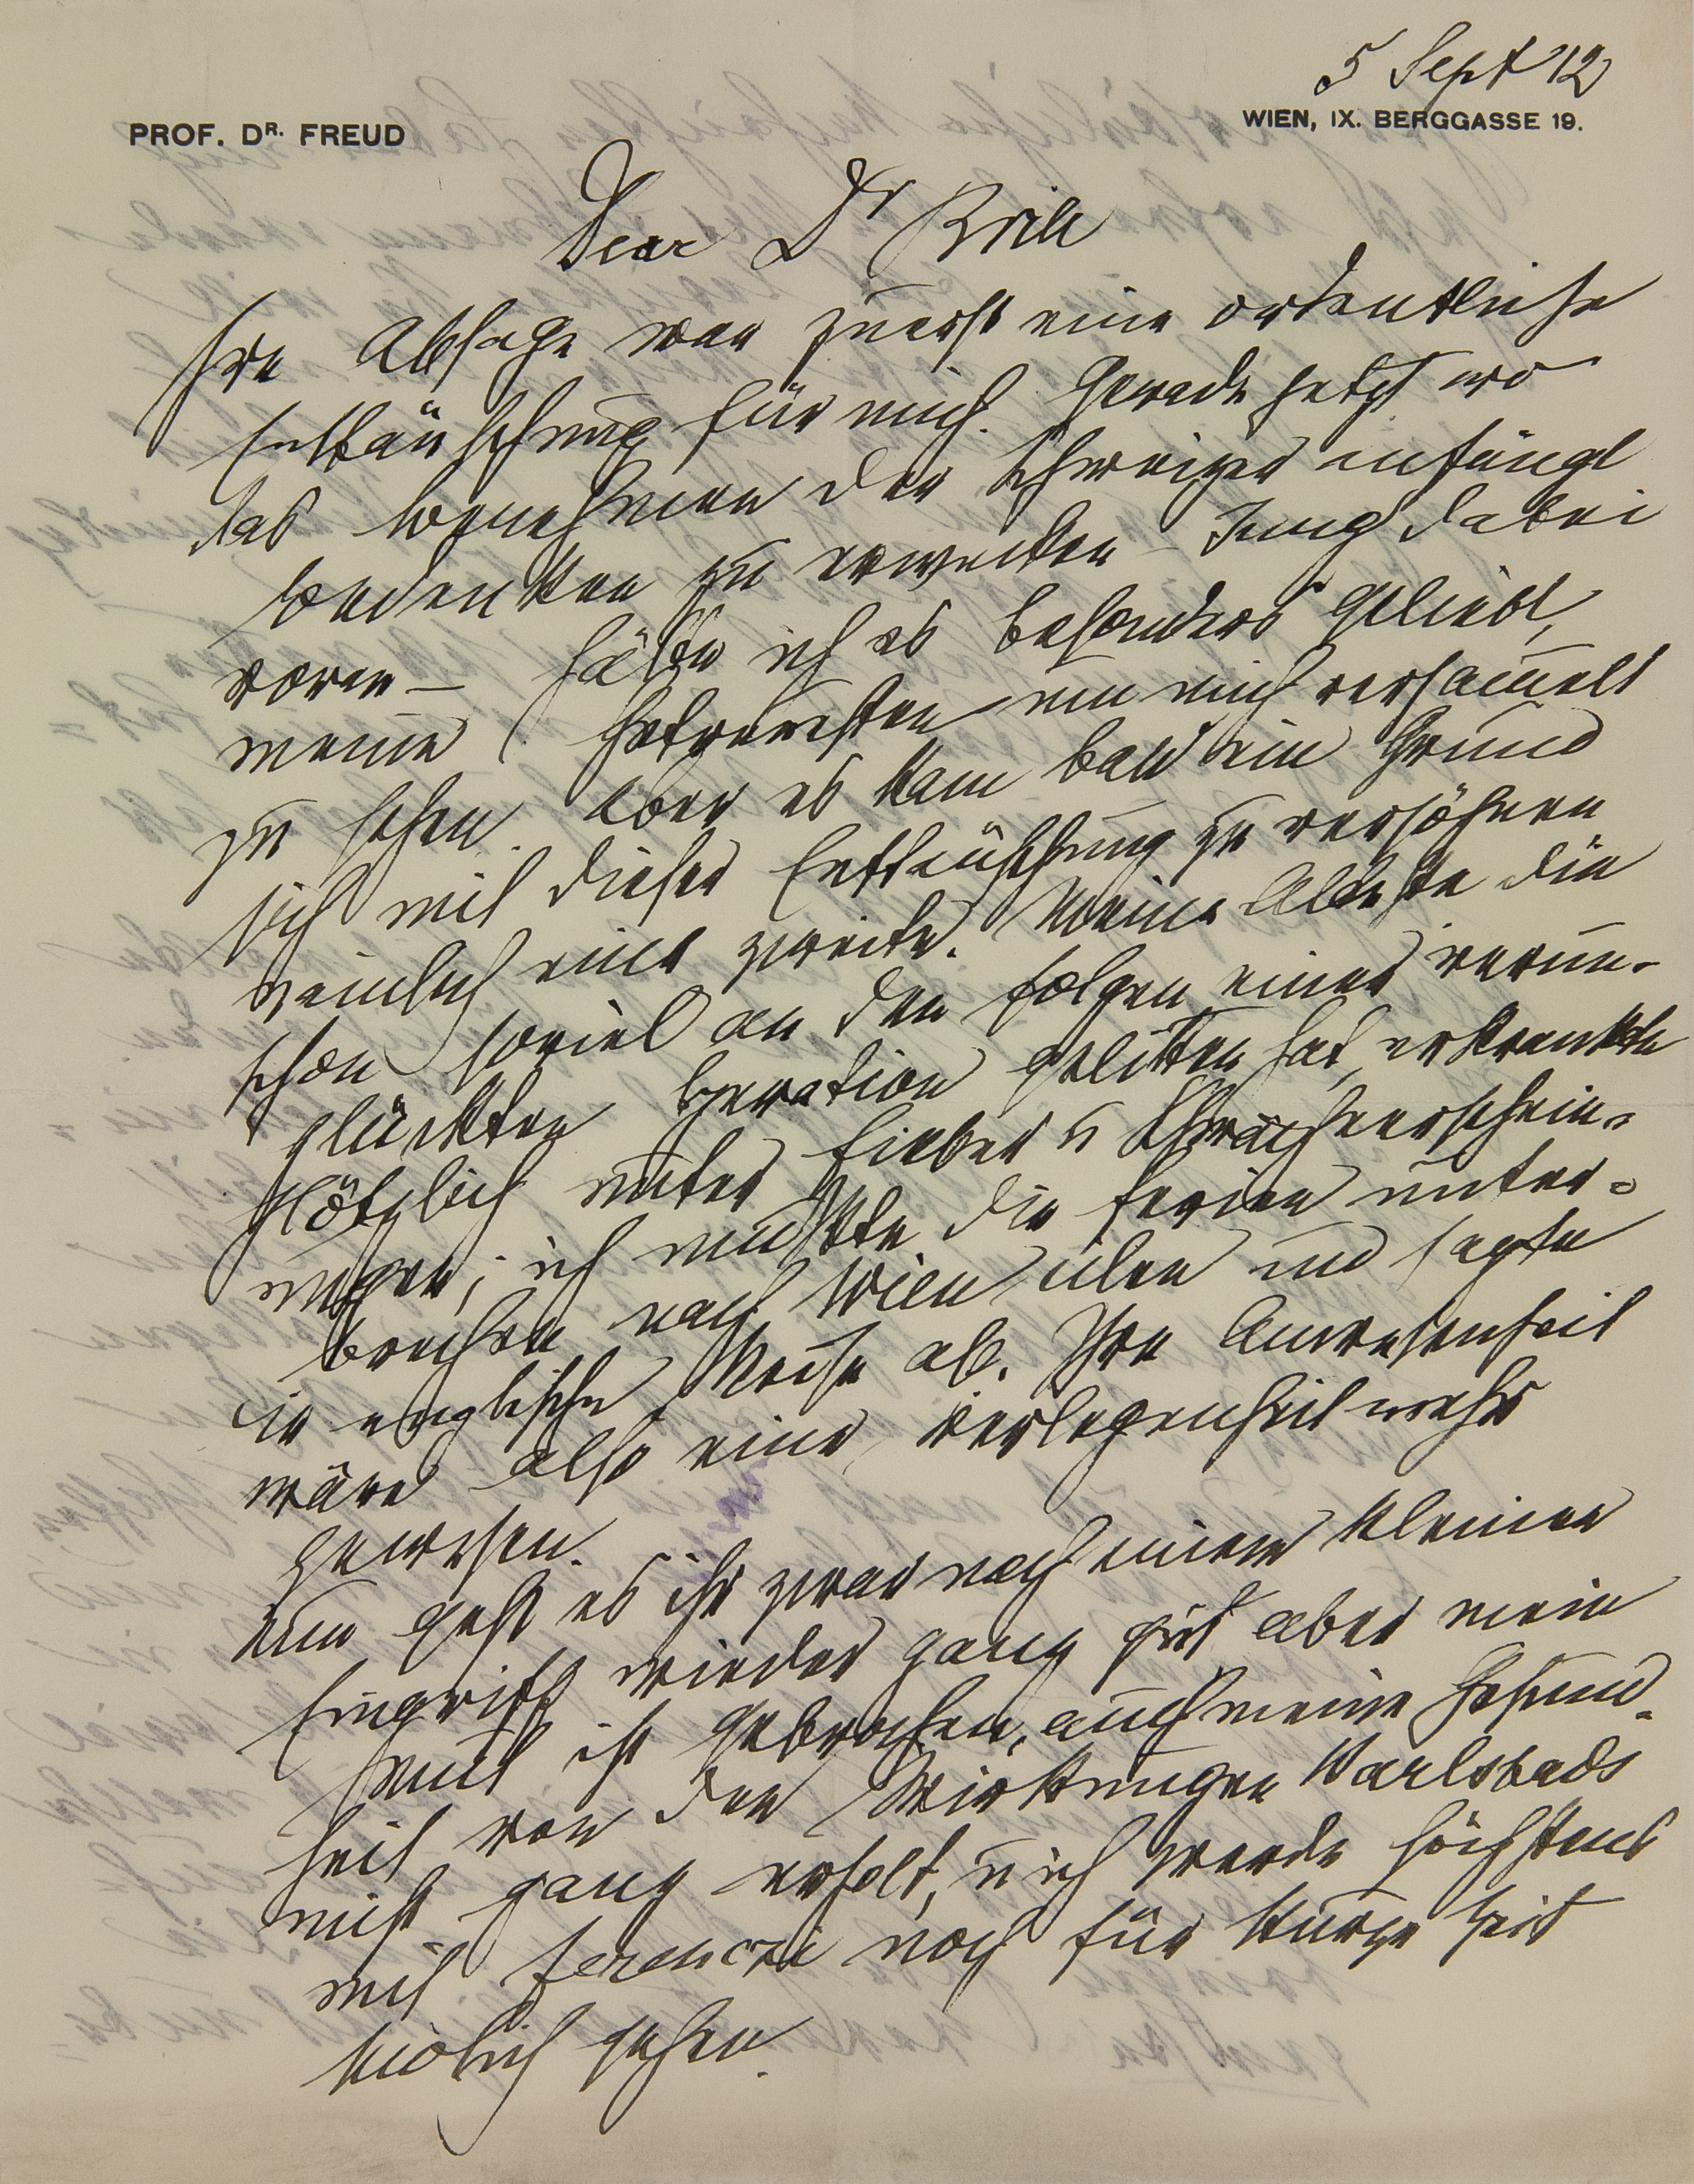 5 Sept 12
PROF. DR. FREUD
WIEN, IX. BERGGASSE 19.
Dear Dr Brill
Ihre Absage war zuerst eine ordentliche
Enttäuschung für mich. Gerade jetzt wo
das Benehmen der Schweizer anfängt
Bedenken zu erwecken – Jung dabei
voran – hätte ich es besonders geliebt,
meine Getreuesten um mich versammelt
zu sehen. Aber es kam bald ein Grund
sich mit dieser Enttäuschung zu versöhnen
nämlich eine zweite. Meine Älteste die
schon soviel an den Folgen einer verun-
glückten Operation gelitten hat, erkrankte
plötzlich unter Fieber u Schwächeerschein-
ungen; ich mußte die Ferien unter-
brechen nach Wien eilen und sagte
die englische Reise ab. Ihre Anwesenheit
wäre also eine Verlegenheit mehr
gewesen.
Nun geht es ihr zwar nach einem kleinen
Eingriff wieder ganz gut aber mein
Mut ist gebrochen, auch meine Gesund-
heit von den Wirkungen Karlsbads
nicht ganz erholt, u ich werde höchstens
mit Ferenczi noch für kurze Zeit
südlich gehen.